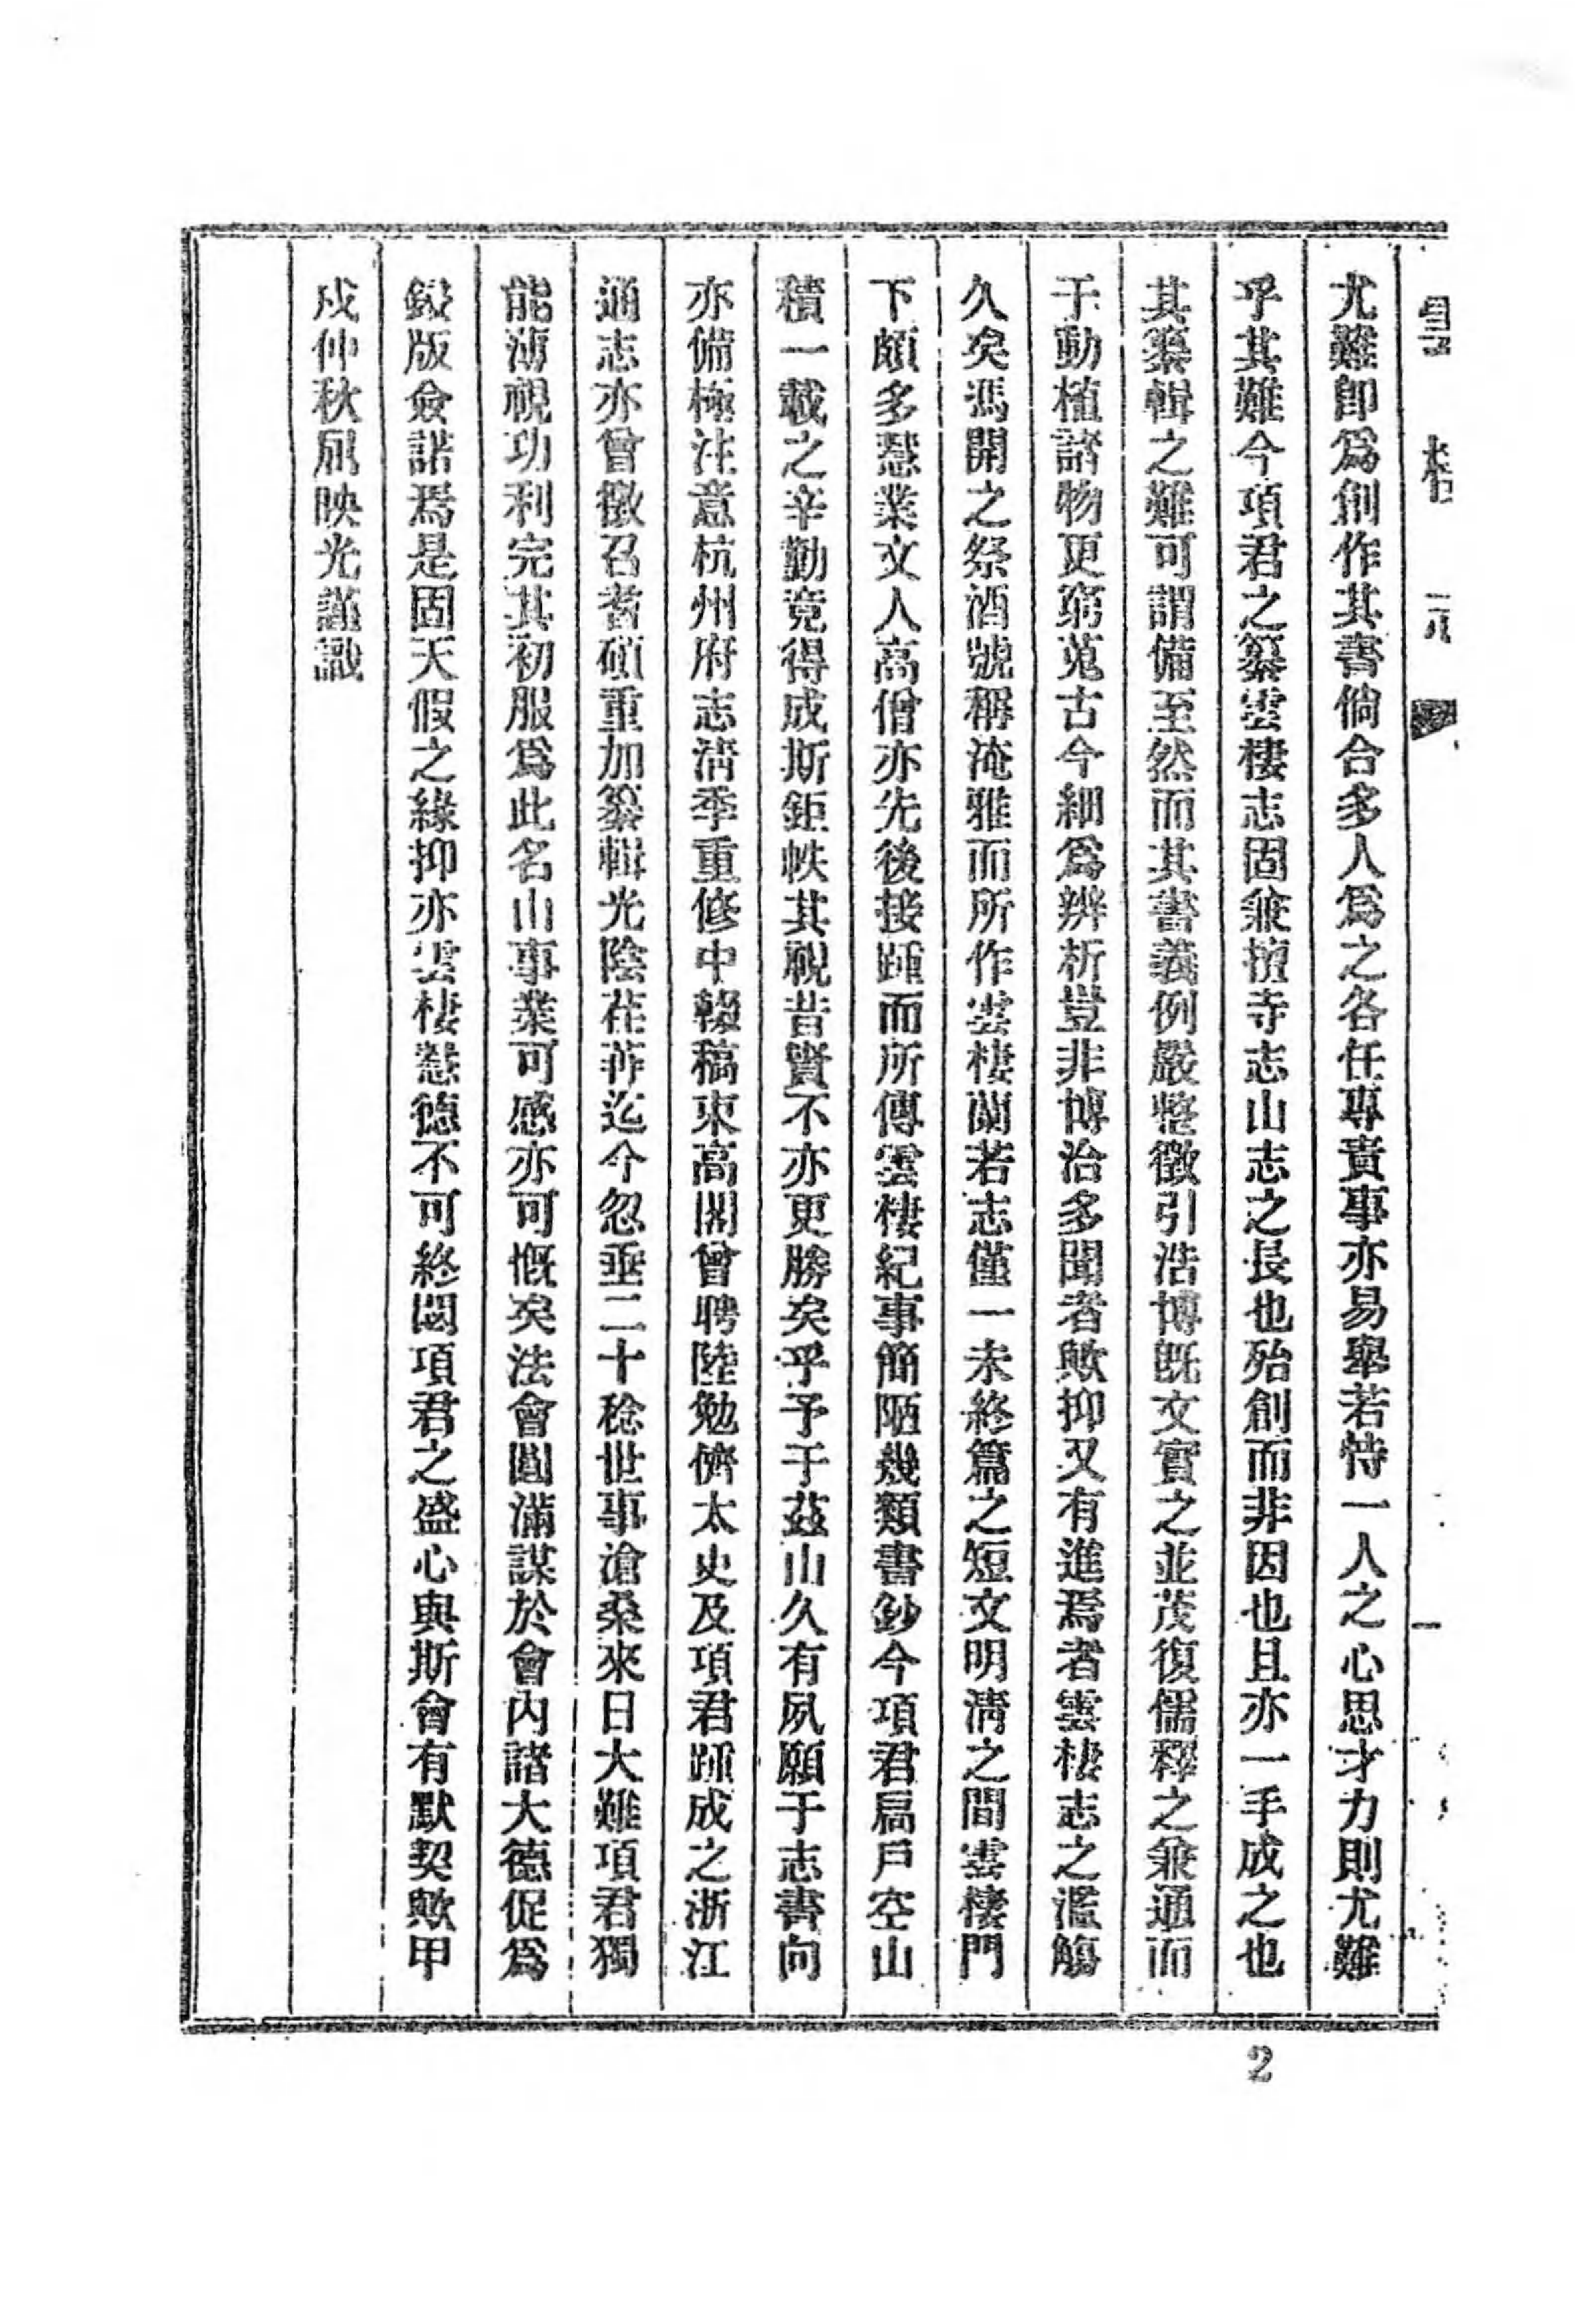 尤難卽爲創作其書倘合多人爲之各任專責事亦易舉若恃一人之心思才力則尤難
乎其難今項君之纂雲棲志固兼擅寺志山志之長也殆創而非因也且亦一手成之也
其纂輯之難可謂備至然而其書義例嚴整徵引浩博旣文實之並茂復儒釋之兼通而
于動植諸物更窮蒐古今細爲辨析豈非博洽多聞者歟抑又有進焉者雲棲志之濫觴
久矣馮開之祭酒號稱淹雅而所作雲棲蘭若志僅一未終篇之短文明淸之間雲棲門
下頗多慧業文人高僧亦先後接踵而所傳雲棲紀事簡陋幾類書鈔今項君扃戶空山
積一載之辛勤竟得成斯鉅帙其視昔賢不亦更勝矣乎予于茲山久有夙願于志書向
亦備極注意杭州府志淸季重修中輟稿束高閣曾聘陸勉儕太史及項君踵成之浙江
通志亦曾徵召耆碩重加纂輯光陰荏苒迄今忽垂二十稔世事滄桑來日大難項君獨
能薄視功利完其初服爲此名山事業可感亦可慨矣法會圓滿謀於會內諸大德促爲
鋟版僉諾焉是固天假之緣抑亦雲棲慧德不可終閟項君之盛心與斯會有默契歟甲
戌仲秋屈映光謹識
2